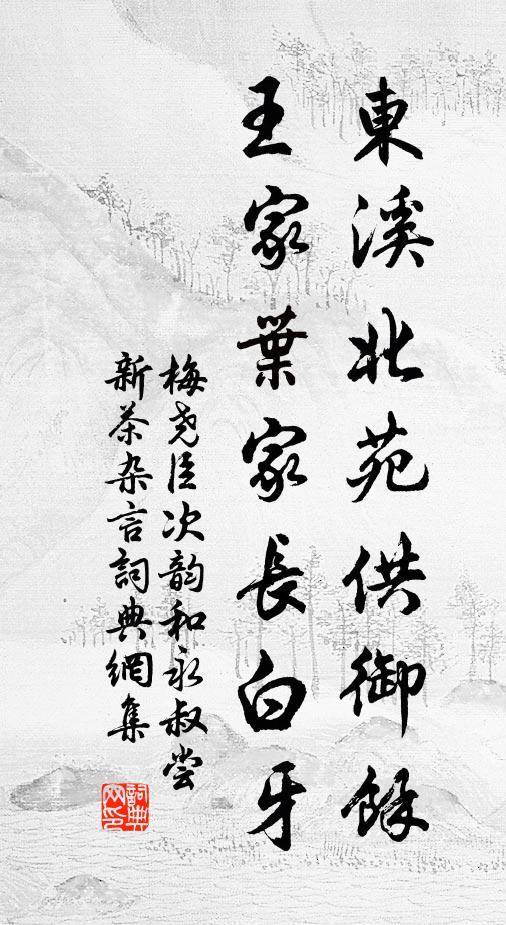 東溪北苑供御餘
王家葉家長白牙
梅尧臣次韵和永叔尝
新茶杂言詞典網集
詞典网印